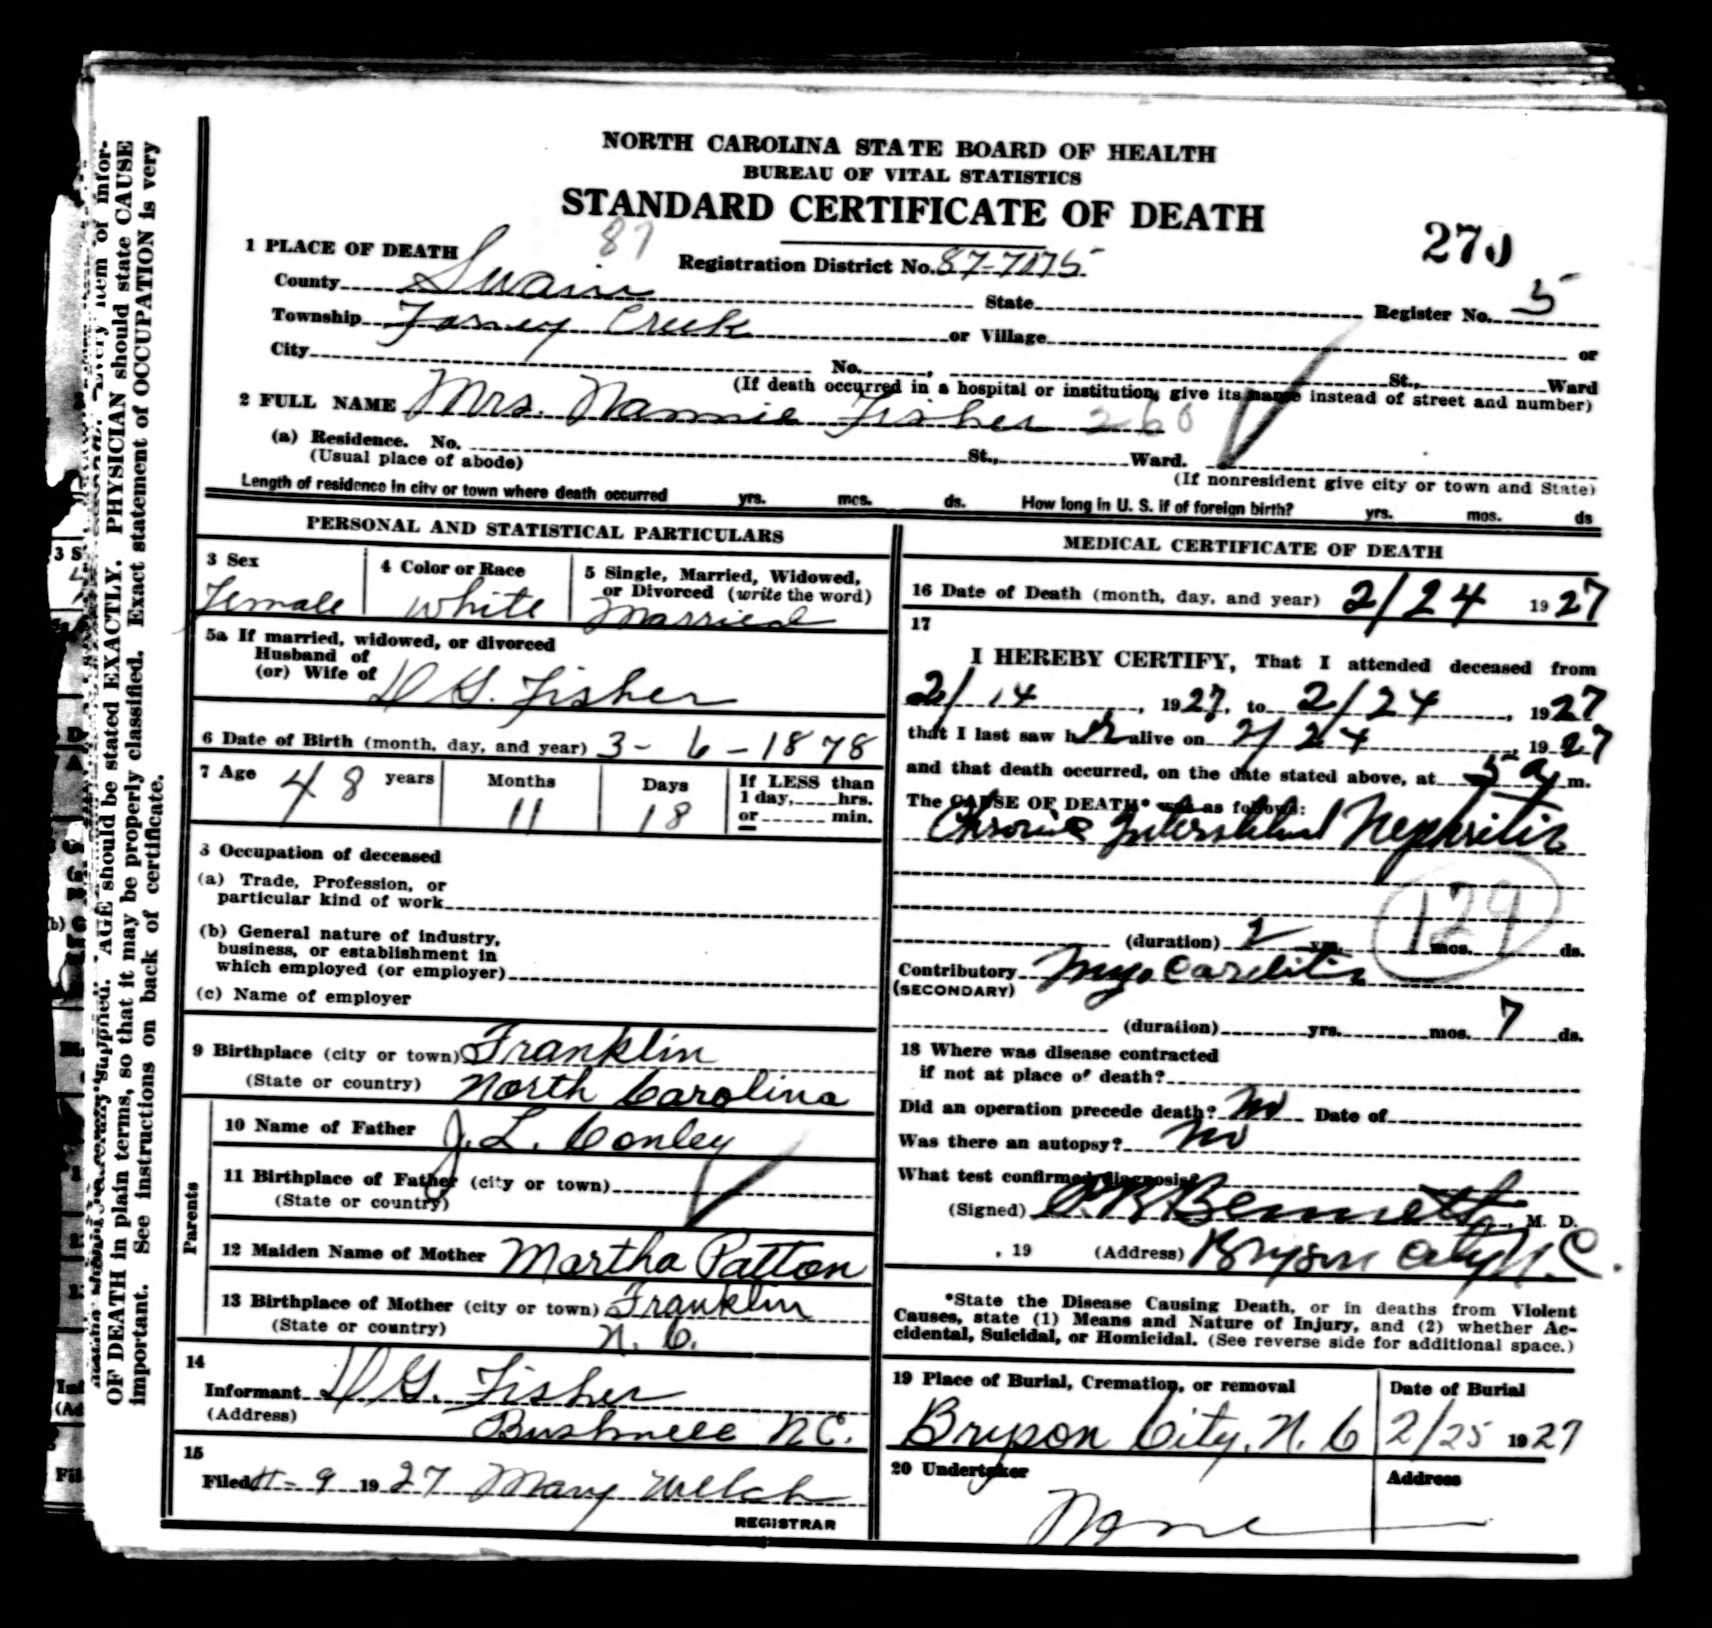 NORTH CAROLINA STATE BOARD OF HEALTH
BUREAU OF VITAL STATISTICS
STANDARD CERTIFICATE OF DEATH
1 PLACE OF DEATH 87 Registration District No. 87-7175
County Swain State Register No. 5
Township Forney Creek or Village or
City No. , St., Ward
(If death occurred in a hospital or institution, give its name instead of street and number)
2 FULL NAME Mrs. Nannie Fisher 260
(a) Residence. No. St., Ward.
(Usual place of abode) (If nonresident give city or town and State)
Length of residence in city or town where death occurred yrs. mos. ds. How long in U. S. if of foreign birth? yrs. mos. ds
PERSONAL AND STATISTICAL PARTICULARS
3 Sex Female
4 Color or Race White
5 Single, Married, Widowed,
or Divorced (write the word)
Married
5a If married, widowed, or divorced
Husband of
(or) Wife of D G. Fisher
6 Date of Birth (month, day, and year) 3 - 6 - 1878
7 Age 48 years Months 11 Days 18
If LESS than
1 day, hrs.
or min.
3 Occupation of deceased
(a) Trade, Profession, or
particular kind of work
(b) General nature of industry,
business, or establishment in
which employed (or employer)
(c) Name of employer
9 Birthplace (city or town) Franklin
(State or country) North Carolina
Parents
10 Name of Father J. L. Conley
11 Birthplace of Father (city or town)
(State or country)
12 Maiden Name of Mother Martha Patton
13 Birthplace of Mother (city or town) Franklin
(State or country) N. C.
14
Informant D G. Fisher
(Address) Bushnell N C.
15
Filed 4-9 1927 Mary Welch
REGISTRAR
MEDICAL CERTIFICATE OF DEATH
16 Date of Death (month, day, and year) 2/24 1927
17
I HEREBY CERTIFY, That I attended deceased from
2/14, 1927, to 2/24, 1927
that I last saw her alive on 2/24, 1927
and that death occurred, on the date stated above, at 5 a m.
The CAUSE OF DEATH* was as follows:
Chronic Interstitial Nephritis
129
(duration) 2 yrs. mos. ds.
Contributory Myocarditis
(SECONDARY)
(duration) yrs. mos. 7 ds.
18 Where was disease contracted
if not at place of death?
Did an operation precede death? No Date of
Was there an autopsy? No
What test confirmed diagnosis?
(Signed) Bennett, M. D.
, 19 (Address) Bryson City N. C.
*State the Disease Causing Death, or in deaths from Violent
Causes, state (1) Means and Nature of Injury, and (2) whether Ac-
cidental, Suicidal, or Homicidal. (See reverse side for additional space.)
19 Place of Burial, Cremation, or removal
Bryson City, N. C
Date of Burial
2/25 1927
20 Undertaker
None
Address
OF DEATH in plain terms, so that it may be properly classified. Exact statement of OCCUPATION is very
important. See instructions on back of certificate.
AGE should be stated EXACTLY. PHYSICIAN should state CAUSE
Every item of infor-